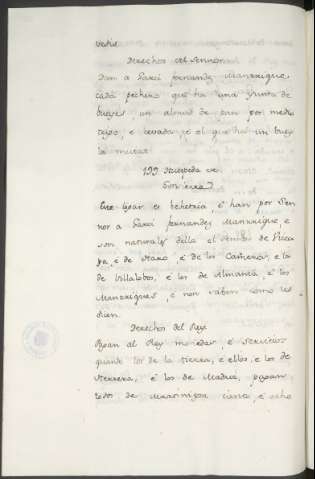 Derechos del Sennor
Dan a Garci Fernandez Manrrique,
cada pechero que ha una yunta de
bueyes un almud de pan por medio
trigo, e cevada, e el que ha un buey
la meitat
199
Este logar es behetria, e han por Sen
nor a Garci Fernandez Manrrique e
son naturales della el Sennor de Vizca
ya, e de Haro, e de los Cameros, e los
de Villalobos, e los de Almança e los
Manrriques, e non saben como les
dien.
Derechos del Rey
Pagan al Rey monedas, e servicios
quando los de la tierra, e ellos, e los de
Herrera, e los de pagan
todos de Martiniega e ocho